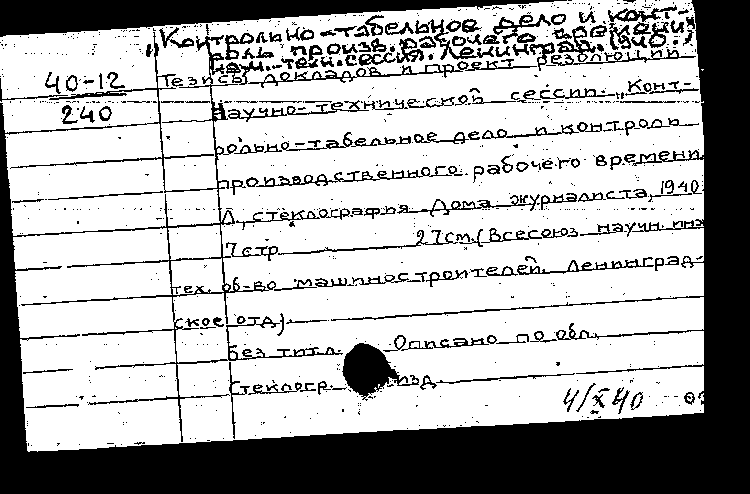 „Контрольно-табельное дело и конт-
роль произв. рабочего времени",
научн. техн. сессия. Ленинград. 1940.
40-12
240
Тезисы докладов и проект резолюций
Научно-технической сессии. „Конт-
рольно-табельное дело и контроль
производственного рабочего времени.
Л, стеклография Дома журналиста, 1940.
7 стр 27см. (Всесоюз научн. инж
тех. об-во машиностроителей. Ленинград-
ское отд).
без титл. Описано по обл.
Стеклогр. изд.
4/X 40